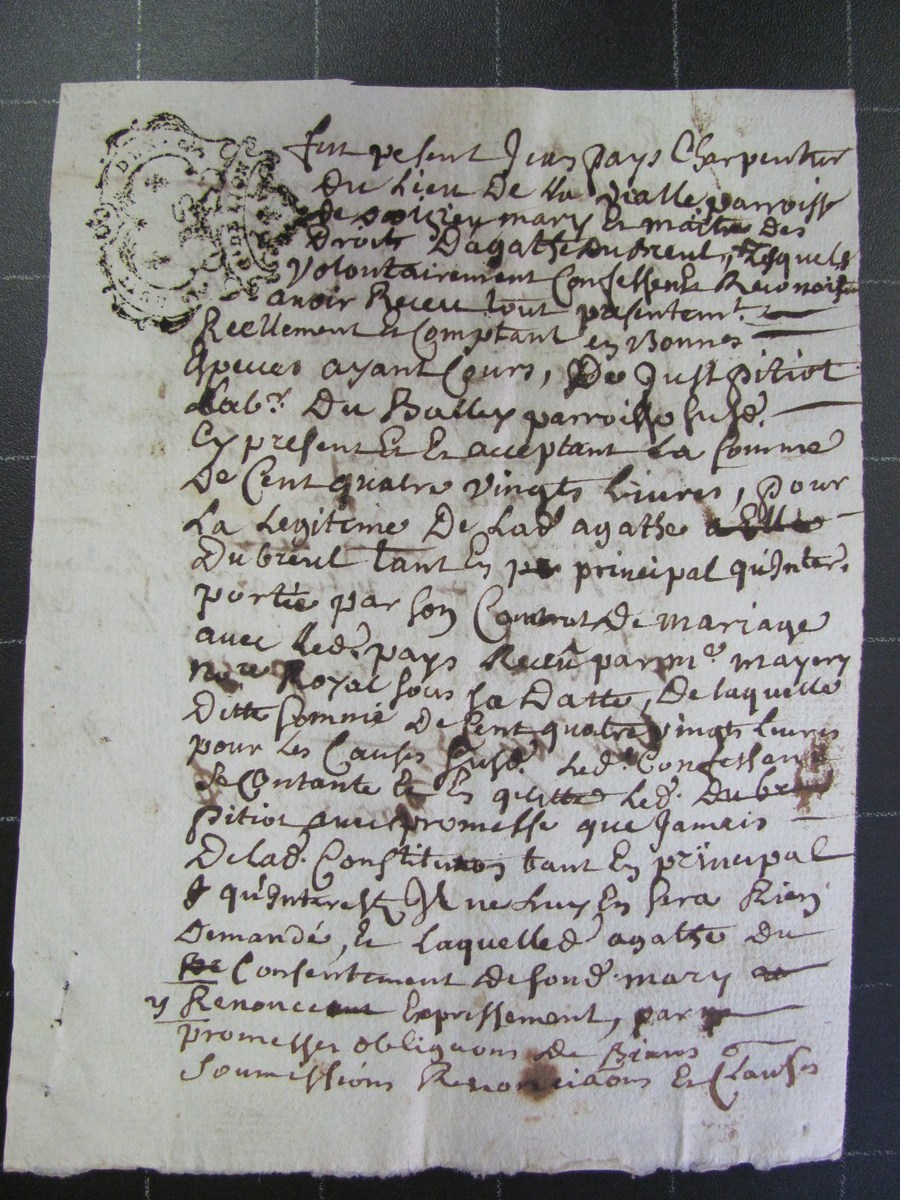 fut pesent Jean pays Charpentier
Du Lieu De lla vialle parroisse
de mary Et maitre des
Droits Dagathe Dubreul, Lesquels
Volontairement Confessent Et
avoir Receu tout presentemt.
Reellement Et Comptant en Bonnes
Speces ayant Cours, De Just pitiot
Labr. Du Balley parroisse susd.
Cy present Et Et acceptant La somme
De Cent quatre vingts Livres, pour
La Legitime De Lad agathe
Dubreul tant En principal qu'Inter.
portée par son Contrat de mariage
avec Led. pays Receu par me mayery
nore Royal sous sa Datte, De laquelle
Ditte somme de Cent quatre vingts Livres
pour Les Causes susd. Led. Confessent
se Contante Et En quitte Led.
Pitiot avec promesse que Jamais
De lad. Constitu̅on tant En principal
qu'Interest Il ne Luy En sera Rien
Demandé, Et Laquelle d agathe du
Consentement de sond. mary
Renonce Expressement, par
promesses obliguons de Biens
Soumissions Renonciaons Et Clauses